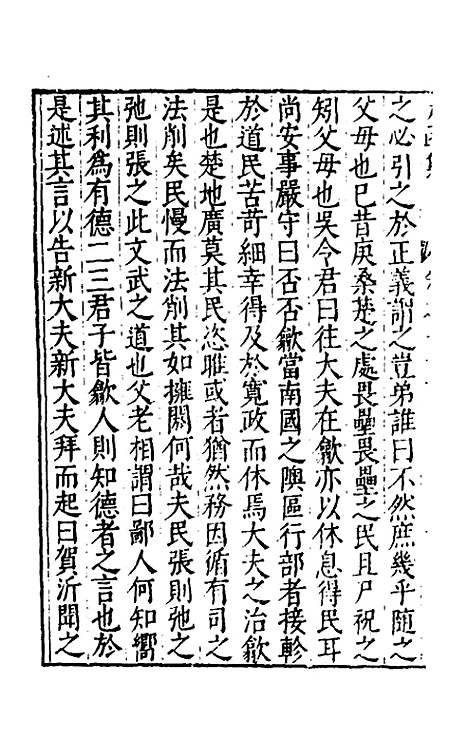 之必引之於正義謂之豈弟誰曰不然庶幾乎隨之
父毋也巳昔庚桑楚之處畏壘畏壘之民且尸祝之
矧父母也吴令君曰往大夫在歙亦以休息得民耳
尚安事嚴守曰否否歙當南國之隩區行部者接軫
於道民苦苛細幸得及於寬政而休焉大夫之治歙
是也楚地廣莫其民恣雎或者猶然務因循有司之
法削矣民慢而法削其如擁閼何哉夫民張則弛之
弛則張之此文武之道也父老相謂曰鄙人何知嚮
其利爲有德二三君子皆歙人則知德者之言也於
是述其言以告新大夫新大夫拜而起曰賀沂聞之